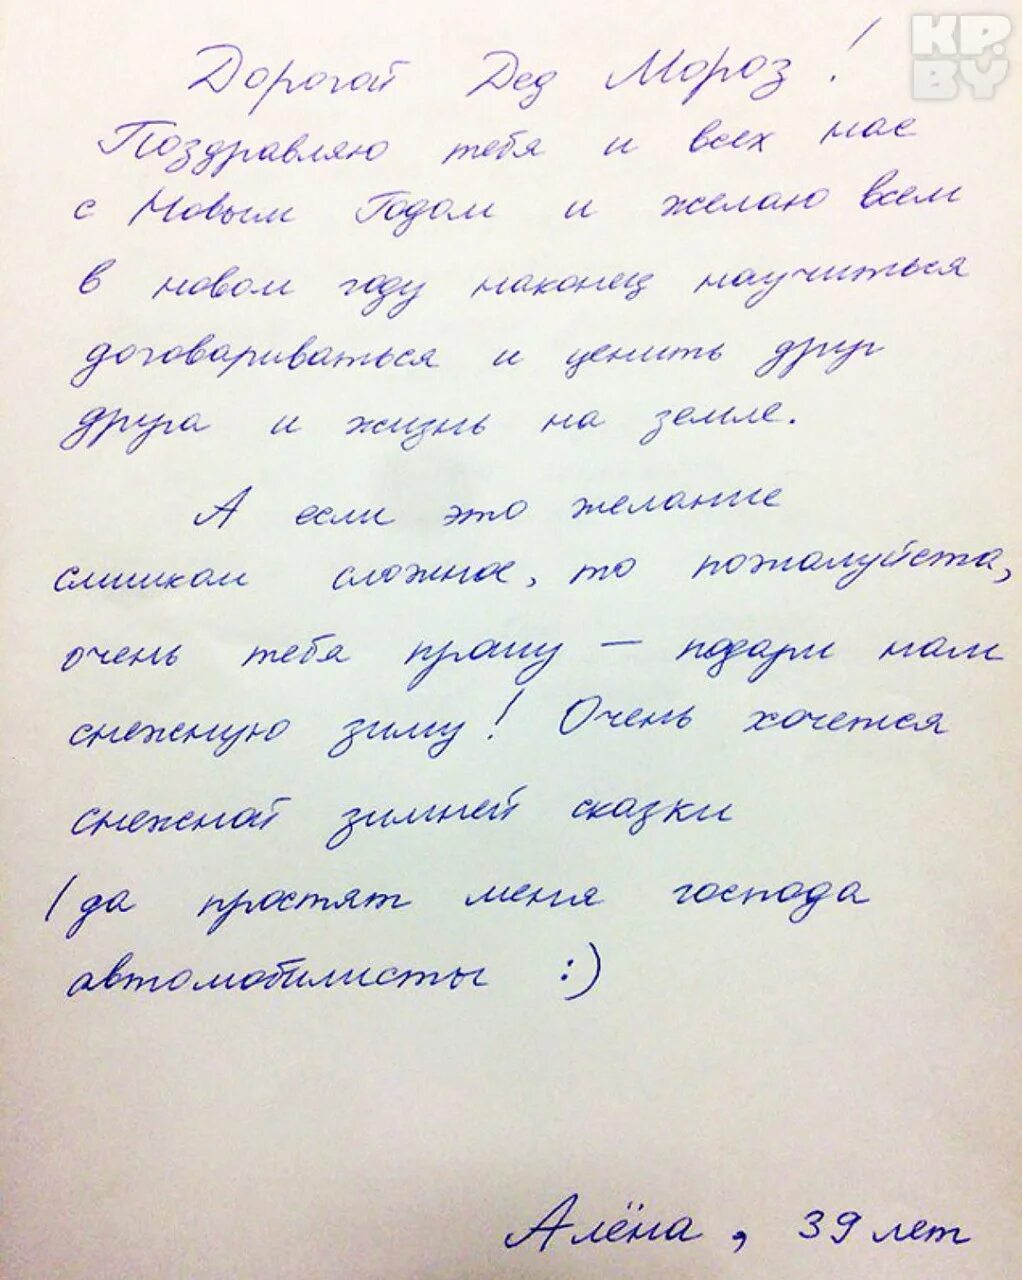 KP.
BY
Дорогой Дед Мороз!
Поздравляю тебя и всех нас
с Новым Годом и желаю всем
в новом году наконец научиться
договариваться и ценить друг
друга и жизнь на земле.
А если это желание
слишком сложное, то пожалуйста,
очень тебя прошу – подари нам
снежную зиму! Очень хочется
снежной зимней сказки
(да простят меня господа
автомобилисты :)
Алёна, 39 лет